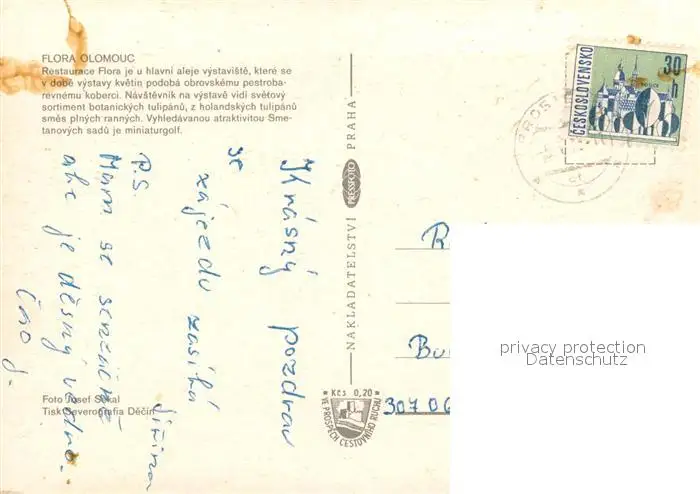 FLORA OLOMOUC
Restaurace Flora je u hlavní aleje výstaviště, které se
v době výstavy květin podobá obrovskému pestroba-
revnému koberci. Návštěvník na výstavě vidí světový
sortiment botanických tulipánů, z holandských tulipánů
směs plných ranných. Vyhledávanou atraktivitou Sme-
tanových sadů je miniaturgolf.
Krásný pozdrav
se
zájezdu zasílá
Jiřina
P.S.
Mám se senzačně
ale je děsný vedro.
Čao J.
Foto Josef Sekal
Tisk Severografia Děčín
NAKLADATELSTVÍ PRESSFOTO PRAHA
Kčs 0,20
VE PROSPĚCH CESTOVNÍHO RUCHU
ČESKOSLOVENSKO
30
h
307 06
privacy protection
Datenschutz